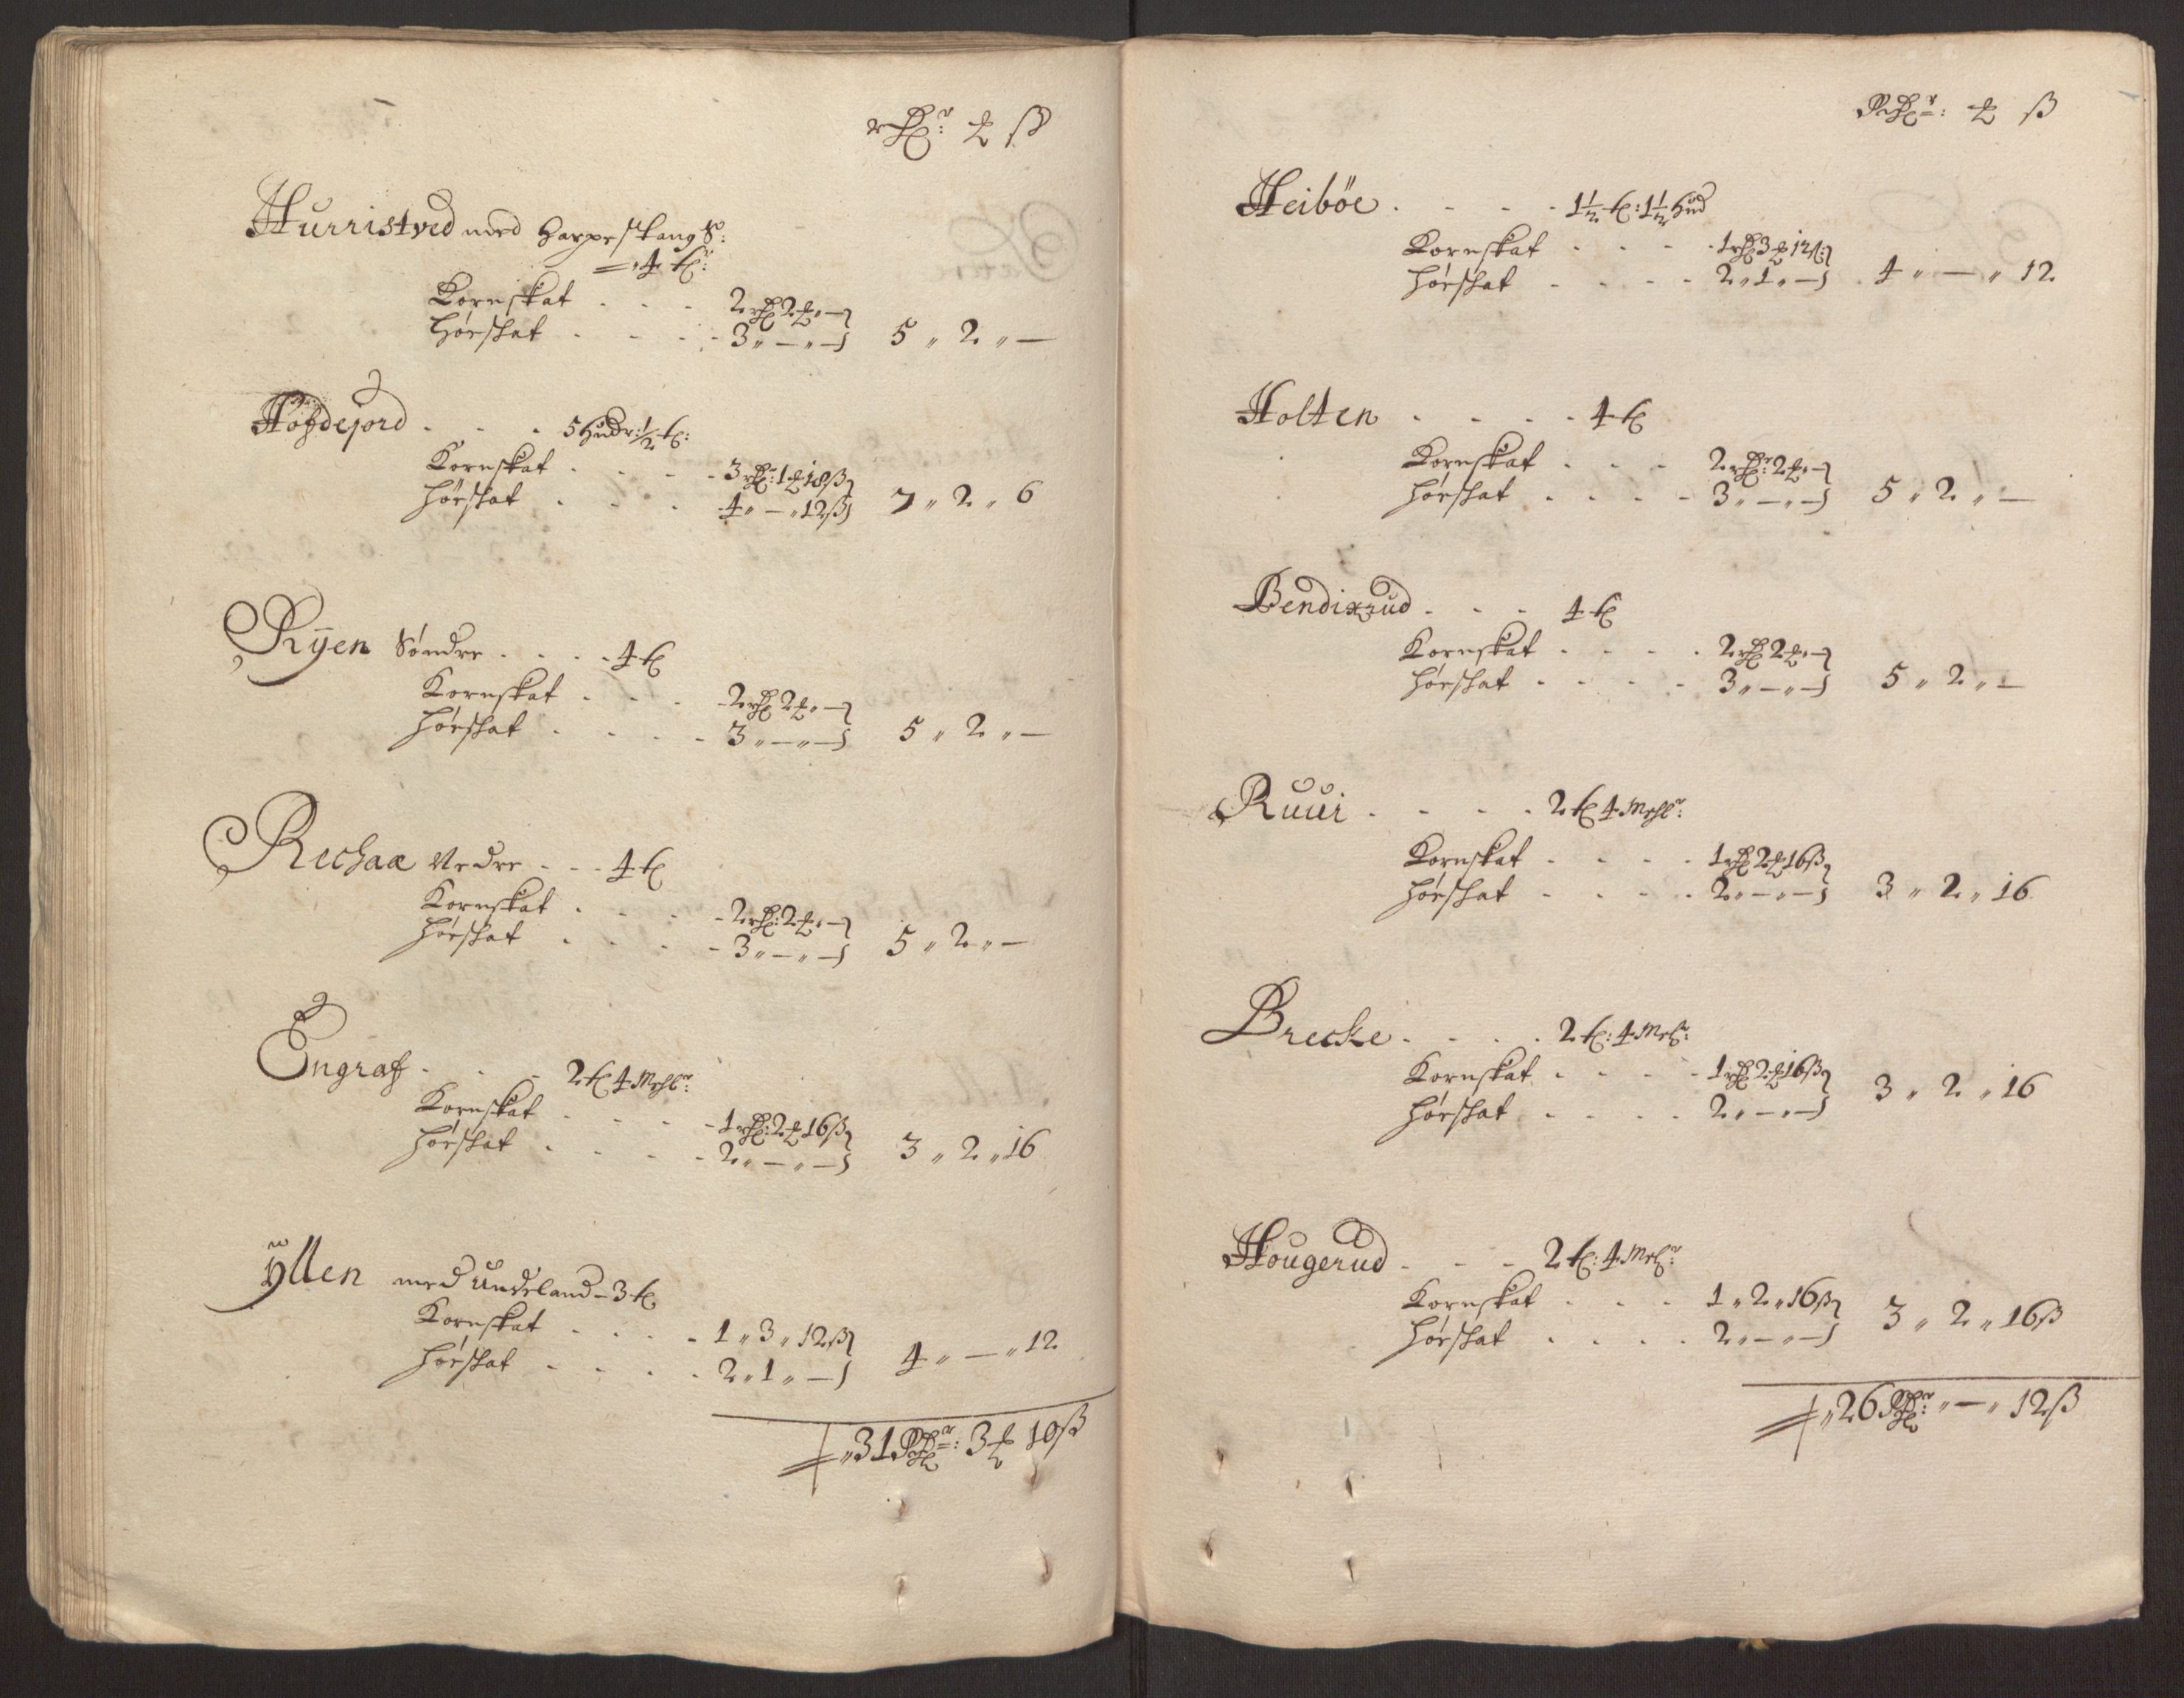 rdr: ₰ ß
Hurristved med Harpestang S:
= 4 tr:
Kornskat . . . 2 rd 2 ₰ " —
Hörskat . . . 3 " — " — 5 " 2 " —
Hofdejord . . . 5 Hudr: 1/2 t:
Kornskat . . . 3 rdr: 1 ₰ 18 ß
Hörskat . . . 4 " — " 12 ß 7 " 2 " 6
Rÿen Söndre . . . 4 t
Kornskat . . . 2 rd 2 ₰ " —
Hörskat . . . 3 " — " — 5 " 2 " —
Rechaae Nedre . . . 4 t
Kornskat . . . 2 rd: 2 ₰ " —
Hörskat . . . 3 " — " — 5 " 2 " —
Engraf . . . 2 t 4 Mehlr:
Kornskat . . . 1 rd: 2 ₰ 16 ß
Hörskat . . . 2 " — " — 3 " 2 " 16
ÿllen med Undeland - 3 t
Kornskat . . . 1 " 3 " 12 ß
Hörskat . . . 2 " 1 " — 4 " — " 12
" 31 Rdr: 3 ₰ 10 ß
Rdr: ₰ ß
Heiböe . . . 1 1/2 t: 1 1/2 Hud
Kornskat . . . 1 rd 3 ₰ 12 ß:
Hörskat . . . 2 " 1 " — 4 " — " 12
Holten . . . 4 t
Kornskat . . . 2 rdr: 2 ₰ " —
Hörskat . . . 3 " — " — 5 " 2 " —
Bendixrud . . . 4 t
Kornskat . . . 2 rd 2 ₰ " —
Hörskat . . . 3 " — " — 5 " 2 " —
Ruui . . . 2 t 4 Mehlr:
Kornskat . . . 1 rd 2 ₰ 16 ß
Hörskat . . . 2 " — " — 3 " 2 " 16
Brecke . . . 2 t: 4 Melr:
Kornskat . . . 1 rd 2 ₰ 16 ß
Hörskat . . . 2 " — " — 3 " 2 " 16
Hougerud . . . 2 t: 4 Melr:
Kornskat . . . 1 " 2 " 16 ß
Hörskat . . . 2 " — " — 3 " 2 " 16 ß
" 26 Rdr: " — " 12 ß